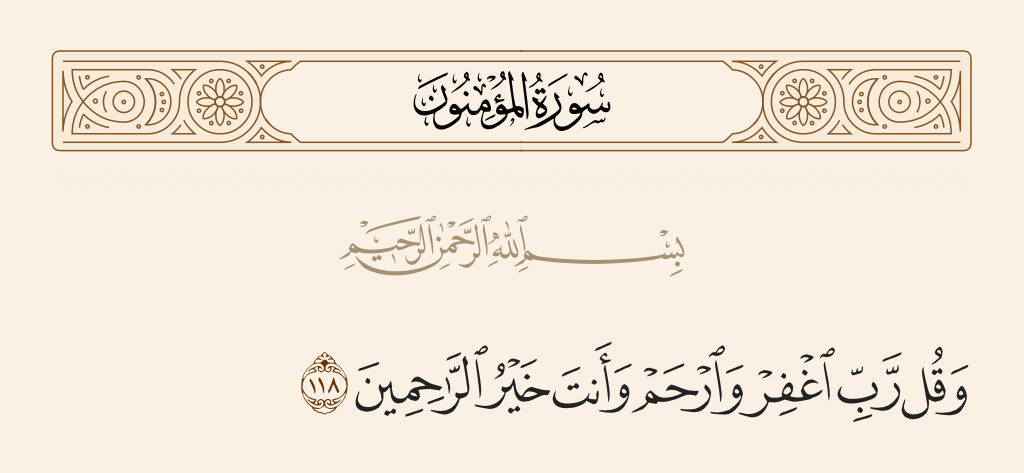 سُورَةُ المُؤْمِنُونَ
بِسْمِ ٱللَّهِ ٱلرَّحْمَٰنِ ٱلرَّحِيمِ
وَقُل رَّبِّ ٱغْفِرْ وَٱرْحَمْ وَأَنتَ خَيْرُ ٱلرَّٰحِمِينَ ١١٨